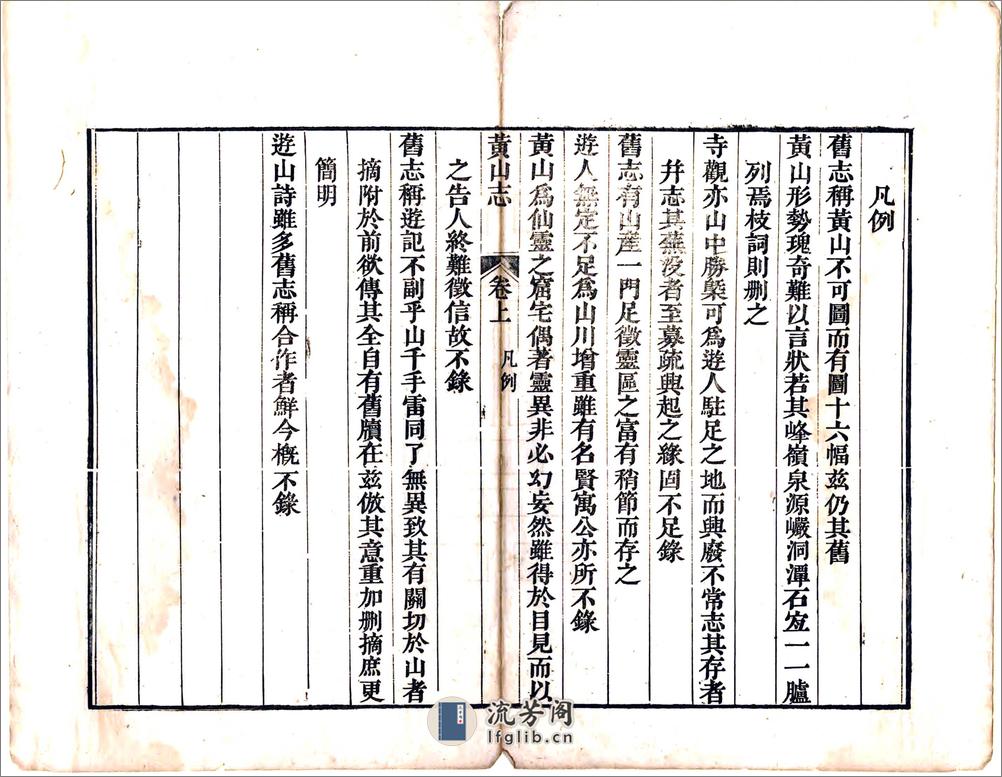 凡例
舊志稱黃山不可圖而有圖十六幅茲仍其舊
黃山形勢瑰奇難以言狀若其峰嶺泉源巗洞潭石宐一一臚
列焉枝詞則刪之
寺觀亦山中勝槩可爲遊人駐足之地而興廢不常志其存者
幷志其蕪没者至募疏興起之緣固不足錄
舊志有山產一門足徵靈區之富有稍節而存之
遊人無定不足爲山川增重雖有名賢寓公亦所不錄
黃山爲仙靈之窟宅偶著靈異非必幻妄然雖得於目見而以
黃山志 卷上 凡例
之告人終難徵信故不錄
舊志稱遊記不副乎山千手雷同了無異致其有關切於山者
摘附於前欲傳其全自有舊牘在茲倣其意重加刪摘庶更
簡明
遊山詩雖多舊志稱合作者鮮今概不錄
流芳阁
lfglib.cn